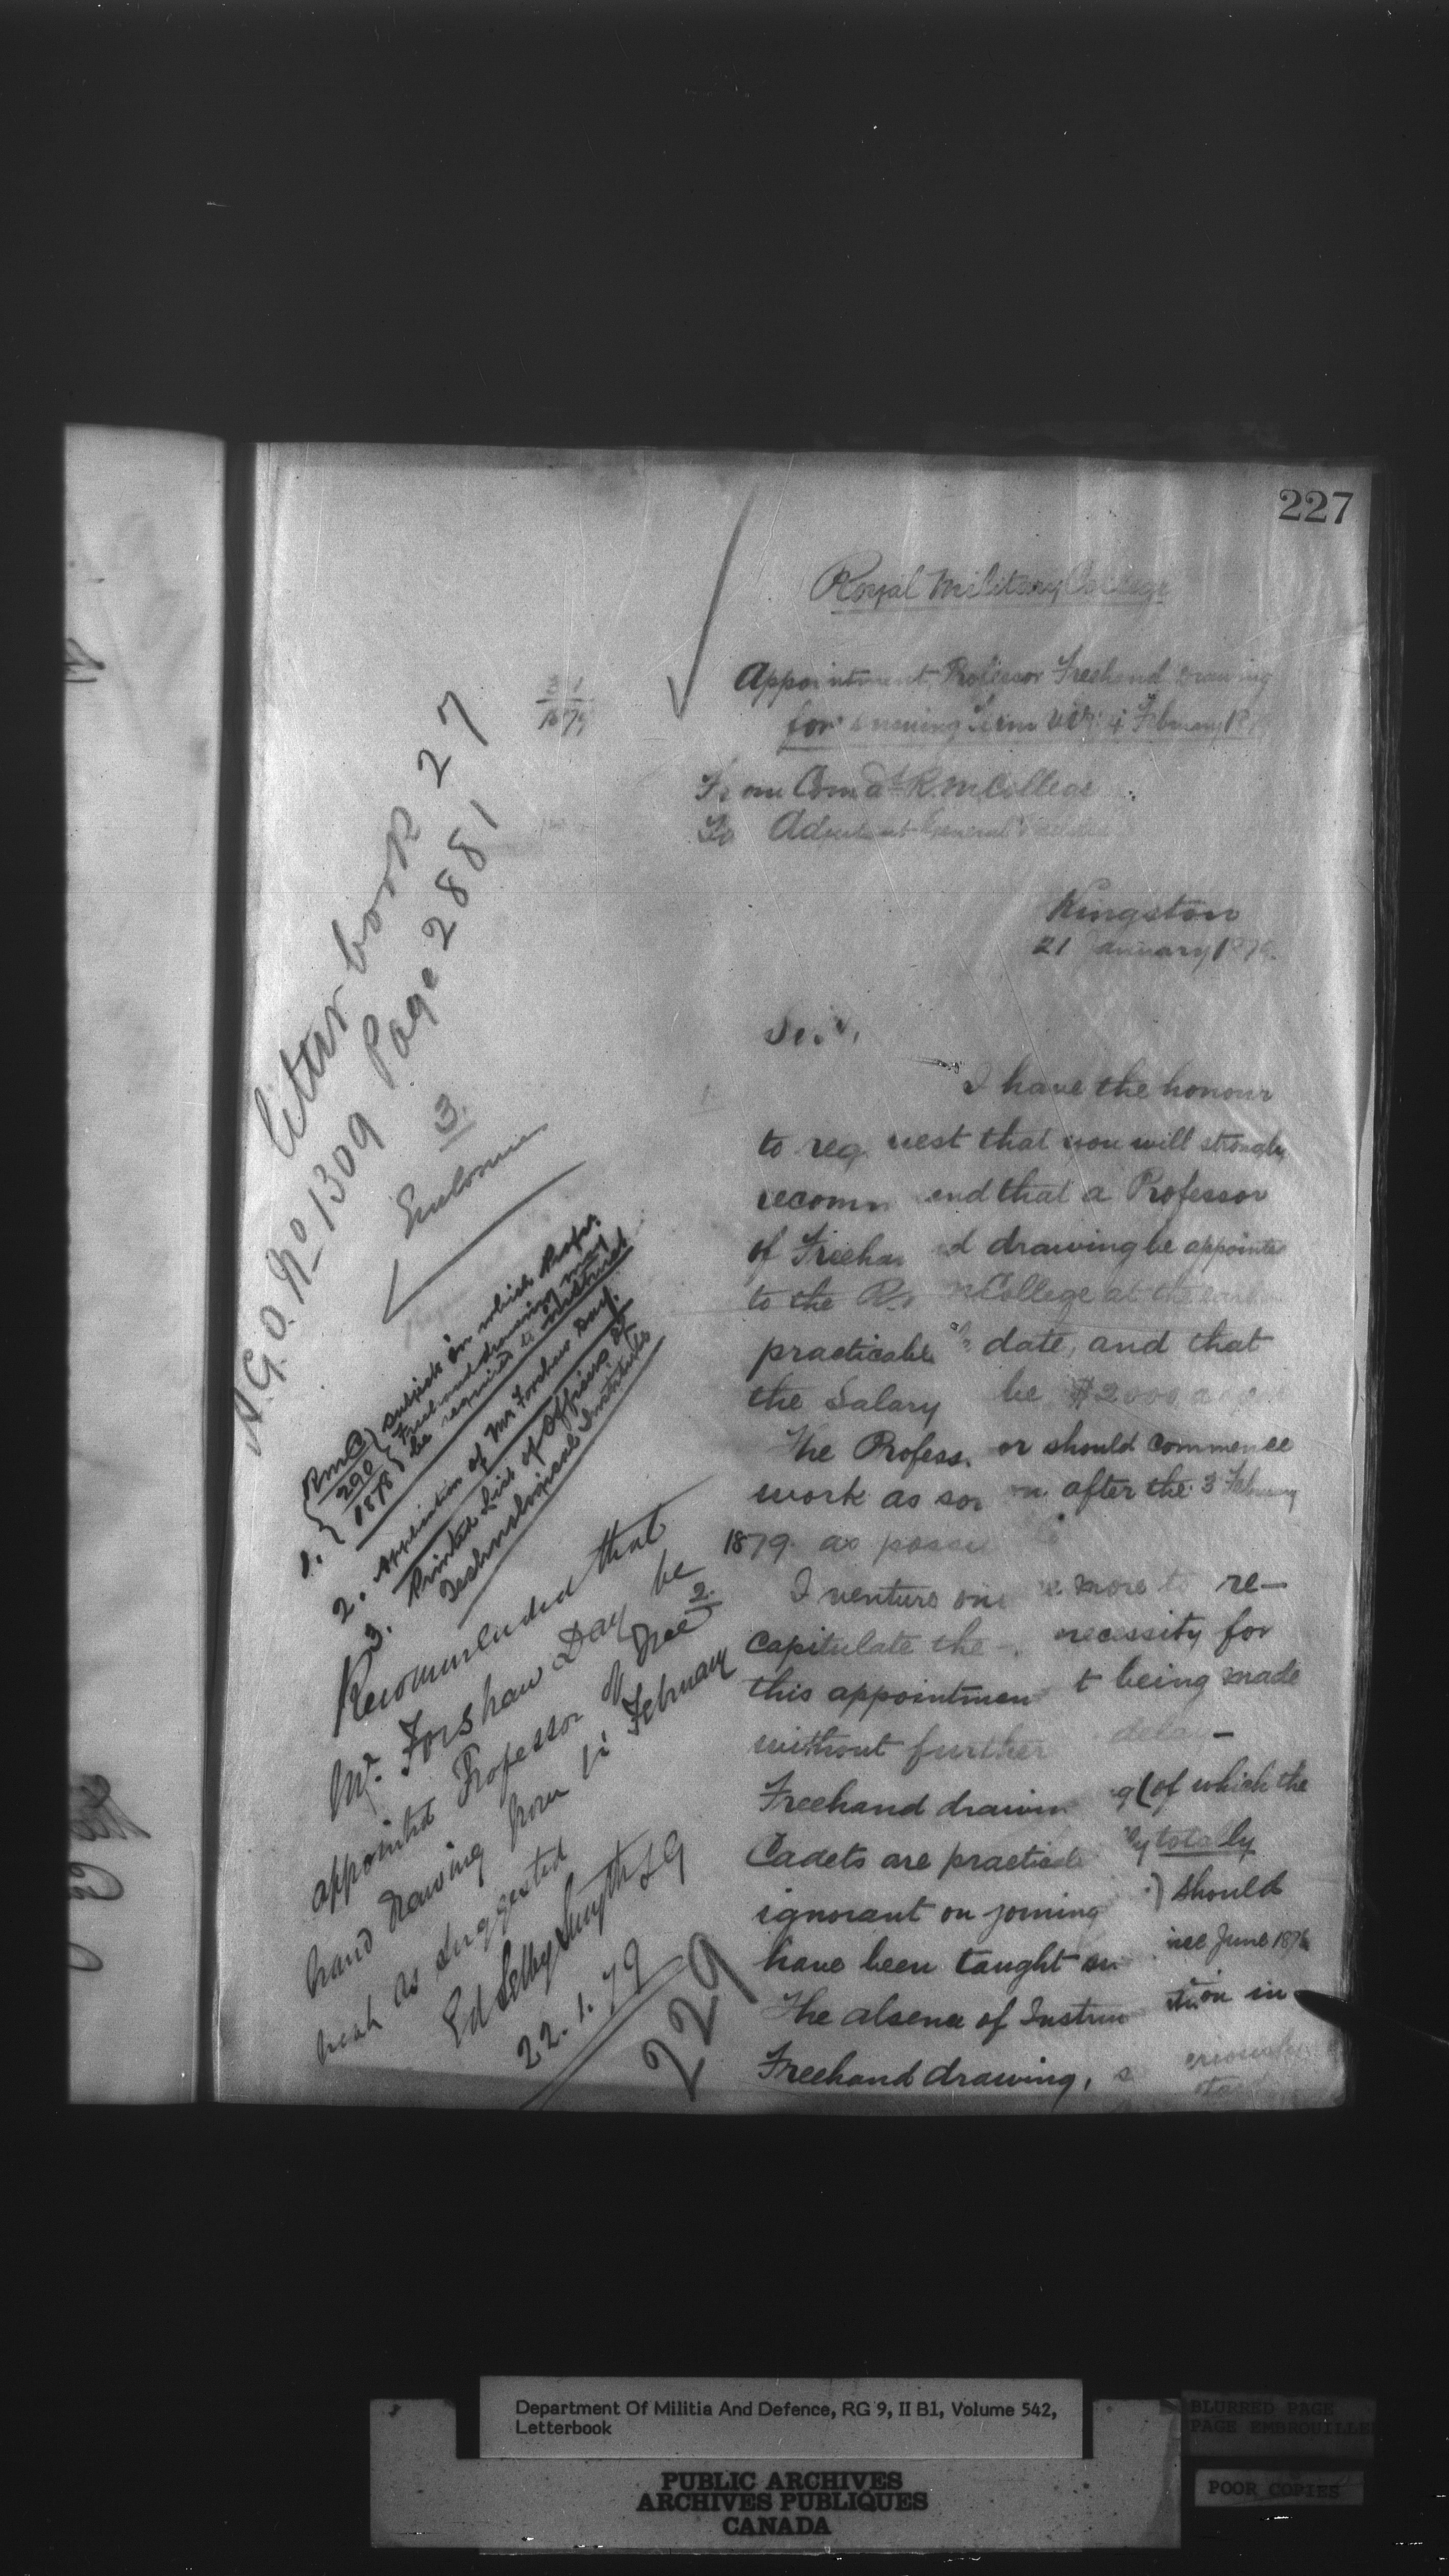 227
Royal Military College
Appointment, Professor Freehand Drawing
for ensuing term 4 February
From Comdt R. M College
To Adjutant General Militia
Kingston
21 January 1879.
Sir,
I have the honour
to request that you will strongly
recommend that a Professor
of Freehand drawing be appointed
to the R. M College at the
practicable date, and that
the Salary be $2000
The Professor should commence
work as soon after the 3 February
1879. as
I venture once more to re-
capitulate the necessity for
this appointment being made
without further delay -
Freehand drawing (of which the
Cadets are practically totally
ignorant on joining) should
have been taught since June 1876
The absence of Instruction in
Freehand drawing, seriously
A.G.O. No 1309
letter book 27
Page 2881
3.
Enclosures
1. { RMC 290 1878 } Subjects in which Profr.
Freehand drawing may
be required to instruct
2. Application of Mr Forshaw Day.
3. Printed List of Officers of
Technological Institute
Recommended that
Mr. Forshaw Day be
appointed Professor of Free
hand Drawing from 1st February
next as suggested
Ed Selby Smyth LG
22.1.79
229
Department Of Militia And Defence, RG 9, II B1, Volume 542,
Letterbook
PUBLIC ARCHIVES
ARCHIVES PUBLIQUES
CANADA
BLURRED PAGE
PAGE EMBROUILLEE
POOR COPIES